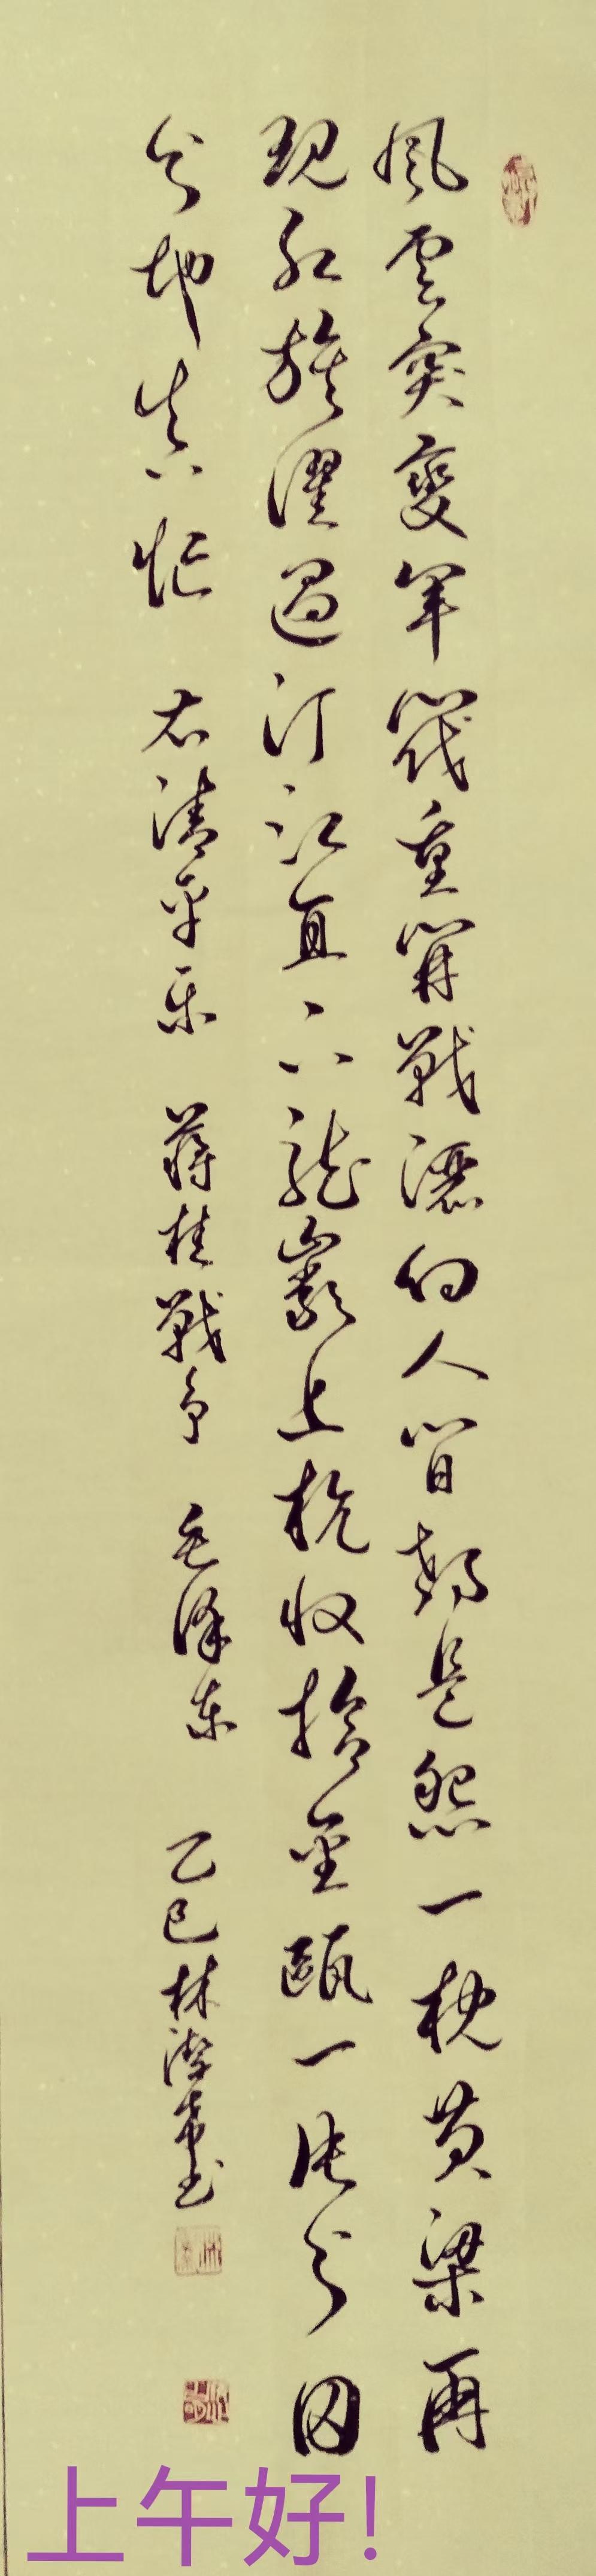 風雲突變軍閥重開戰灑向人間都是怨一枕黄粱再
现红旗躍過汀江直下龍巖上杭收拾金甌一片分田
分地真忙 右清平乐 蒋桂戰争 毛泽东 乙巳林
上午好!